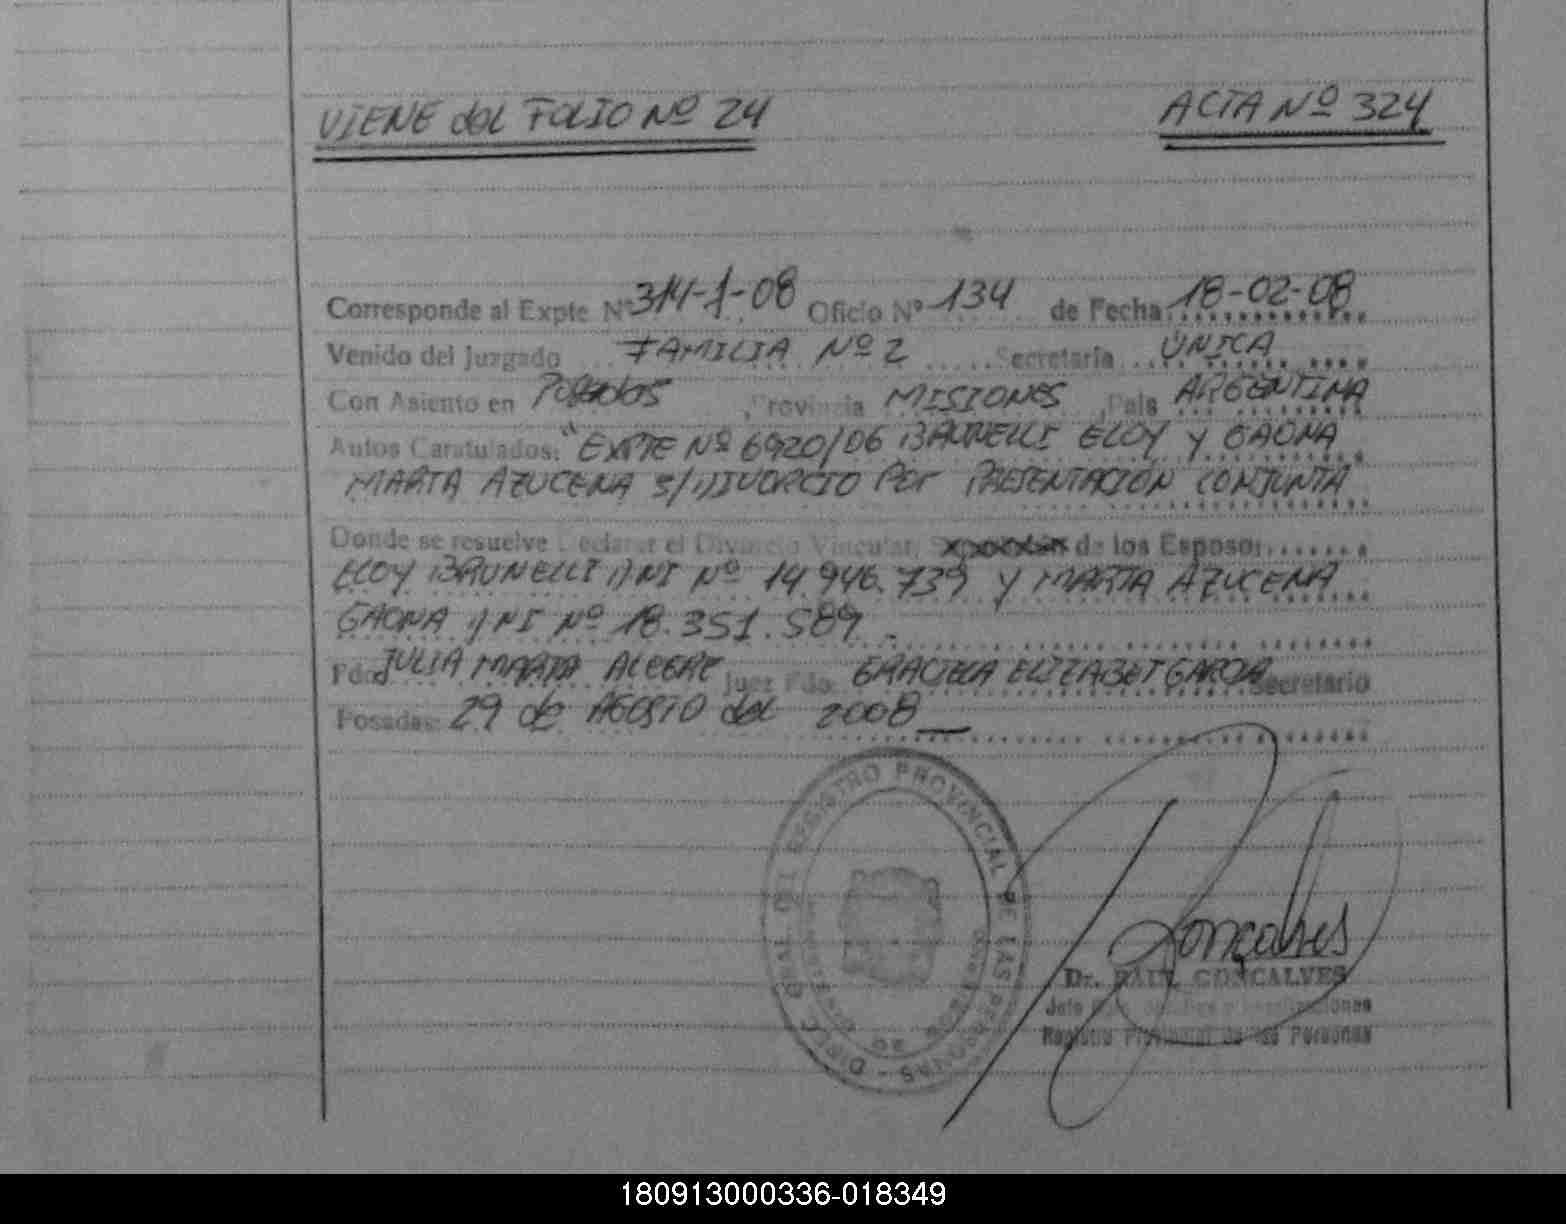 VIENE del FOLIO Nº 24 ACTA Nº 324
Corresponde al Expte Nº 314-1-08 Oficio Nº 134 de Fecha 18-02-08
Venido del Juzgado FAMILIA Nº 2 Secretaria ÚNICA
Con Asiento en Posadas, Provincia MISIONES, Pais ARGENTINA
Autos Caratulados: "EXPTE Nº 6920/06 BRUNELLI ELOY y GAONA
MARTA AZUCENA S/DIVORCIO Por PRESENTACIÓN CONJUNTA
Donde se resuelve Declarar el Divorcio Vincular, de los Esposo:
ELOY BRUNELLI DNI Nº 14.946.739 y MARTA AZUCENA
GAONA DNI Nº 18.351.589.
Fdo. JULIA MARTA ALEGRE Juez Fdo. GRACIELA ELIZABET GARCIA Secretario
Posadas: 29 de AGOSTO del 2008
DIREC. GRAL. DEL REGISTRO PROVINCIAL DE LAS PERSONAS
Gonçalves
Dr. RAUL GONÇALVES
Jefe
Registro Provincial de las Personas
180913000336-018349